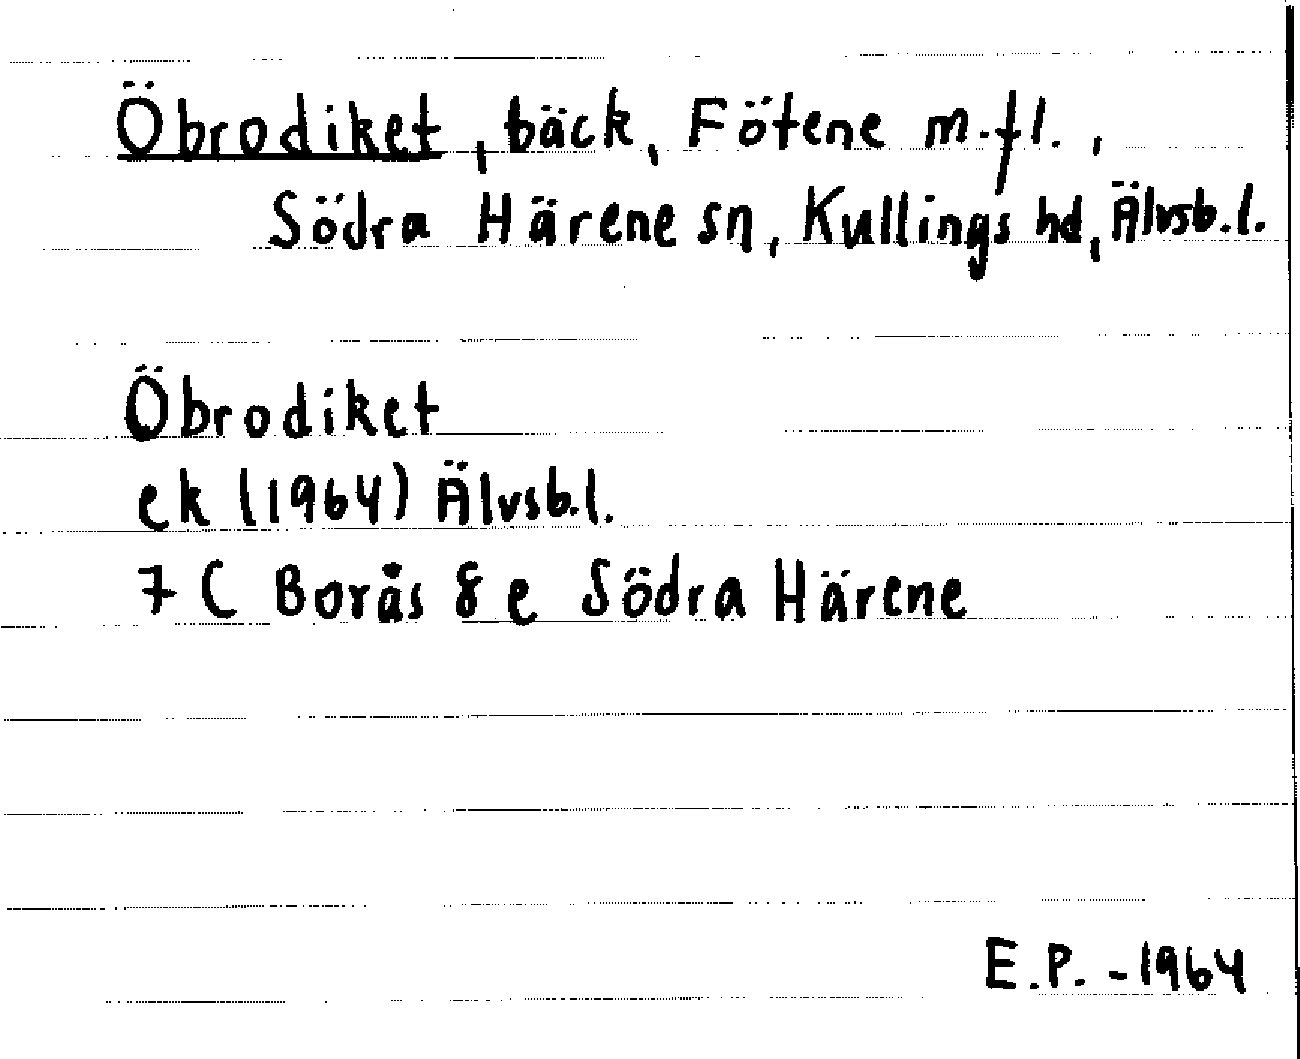 Öbrodiket, bäck, Fötene m.fl.,
Södra Härene sn, Kullings hd, Älvsb.l.
Öbrodiket
ek (1964) Älvsb.l.
7 C Borås 8 e Södra Härene
E.P. - 1964